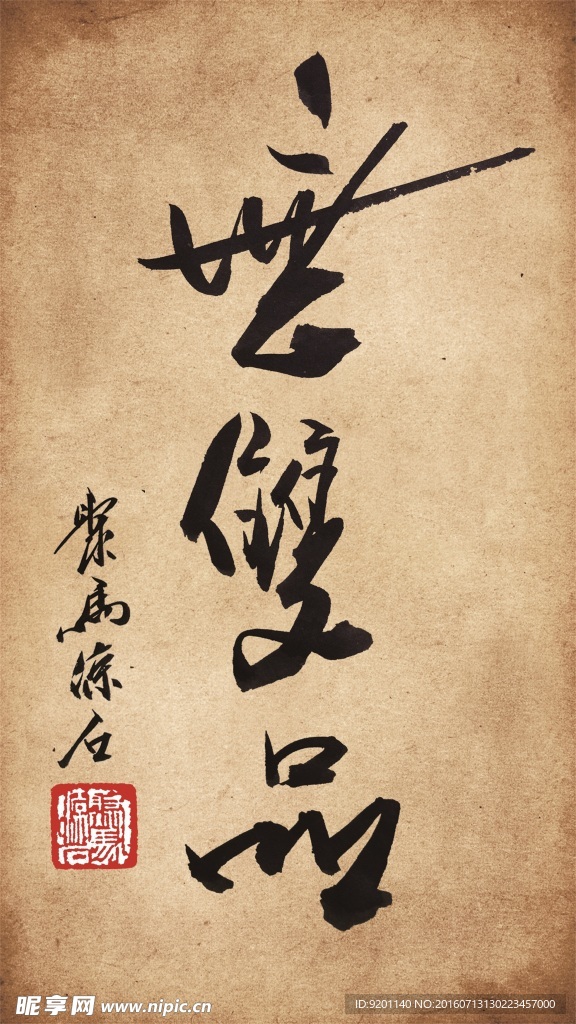 無雙品
聚馬涼石
昵享网 www.nipic.cn
ID:9201140 NO:20160713130223457000